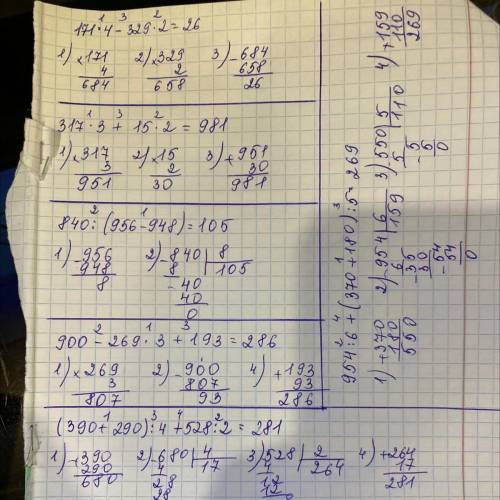 171 · 4 - 329 · 2 = 26
1) ×171 2) ×329 3) -684
4 2 658
684 658 26
317 · 3 + 15 · 2 = 981
1) ×317 2) ×15 3) +951
3 2 30
951 30 981
840 : (956 - 948) = 105
1) -956 2) -840 | 8
948 8 105
8 -40
40
0
900 - 269 · 3 + 193 = 286
1) ×269 2) -900 4) +193
3 807 93
807 93 286
(390 + 290) : 4 + 528 : 2 = 281
1) +390 2) -680 | 4 3) 528 | 2 4) +264
290 4 17 4 264 17
680 28 12 281
28 12
954 : 6 + (370 + 180) : 5 = 269
1) +370 2) -954 | 6 3) -550 | 5 4) +159
180 6 159 5 110 110
550 -35 5 269
30 -5
-54 0
54
0